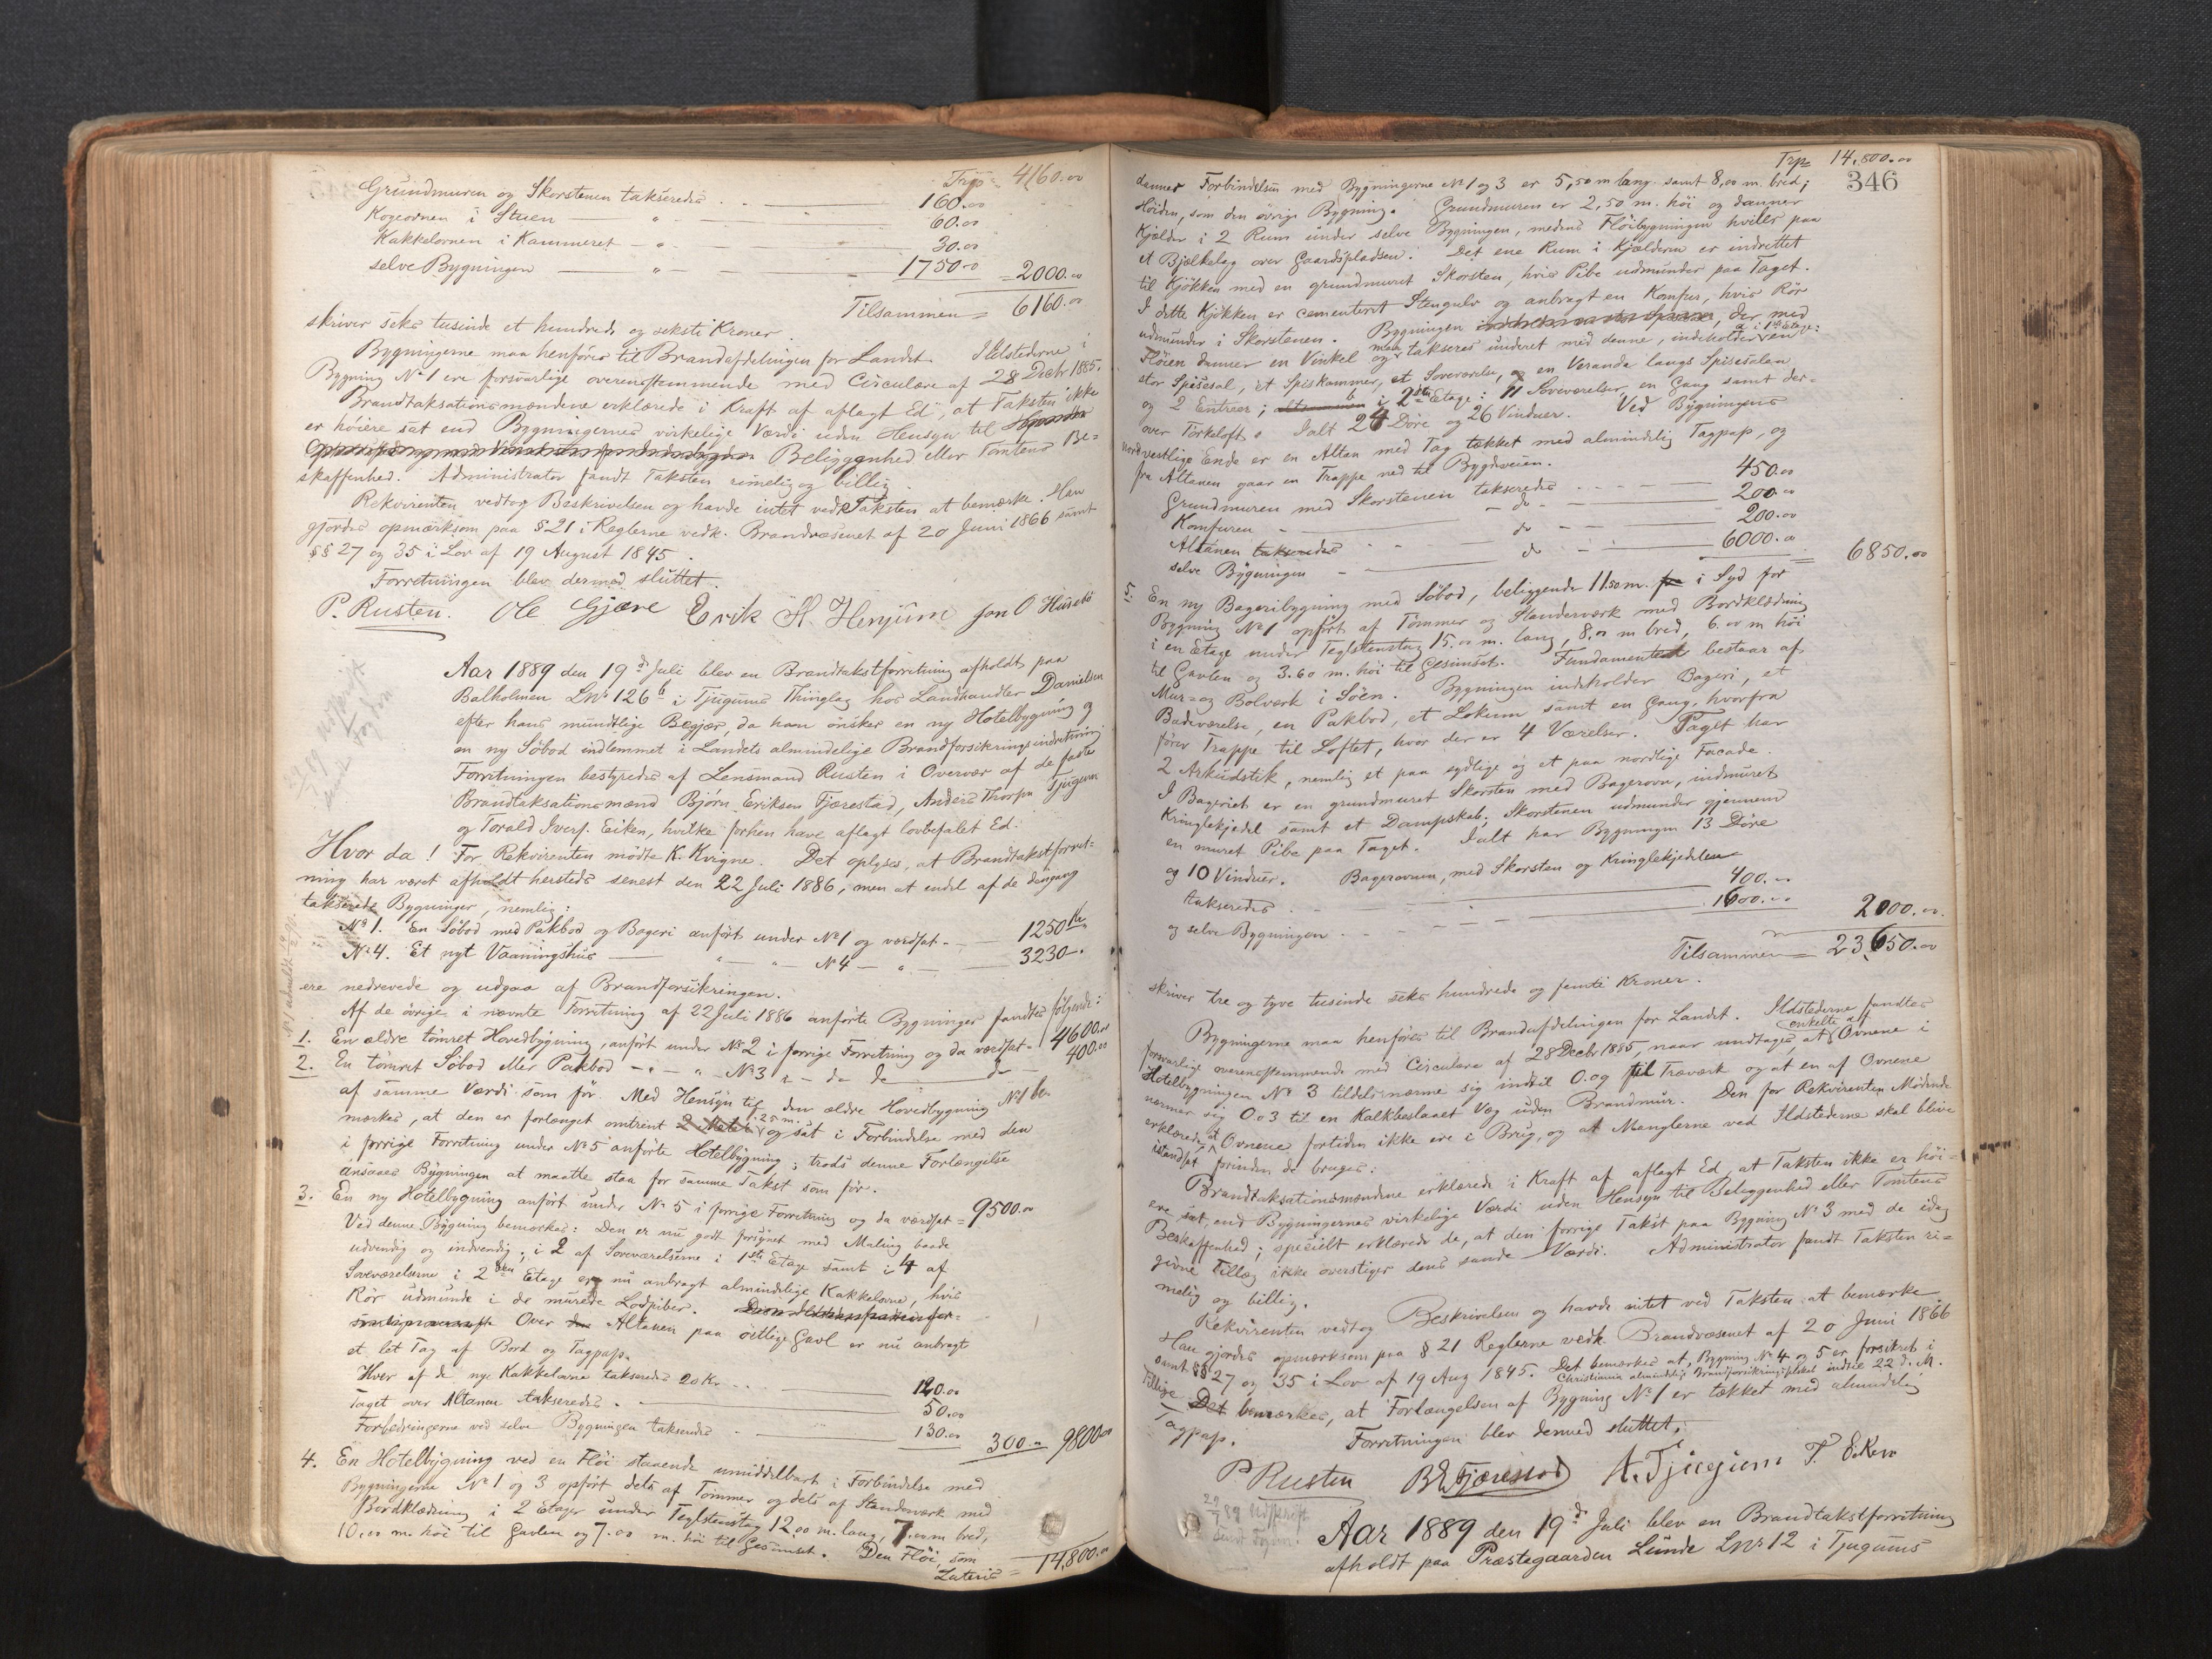 Trp = 4160.00
Grundmuren og Skorstenen takseredes . . 160.00
Kogeovnen i Stuen — " — 60.00
Kakkelovnen i Kammeret — " — 30.00
selve Bygningen — " — 1750.00 = 2000.00
Tilsammen = 6160.00
skriver seks tusinde et hundrede og seksti Kroner.
Bygningerne maa henføres til Brandafdelingen for Landet. Ildstederne i
Bygning No 1 ere forsvarlige overensstemmende med Circulære af 28 Decbr 1885.
Brandtaksationsmændene erklærede i Kraft af aflagt Ed, at Taksten ikke
er høiere sat end Bygningernes virkelige Værdi uden Hensyn til
Beliggenhed eller Tomtens Be=
skaffenhed. Administrator fandt Taksten rimelig og billig.
Rekvirenten vedtog Beskrivelsen og havde intet ved Taksten at bemærke. Han
gjordes opmærksom paa § 21 i Reglerne vedk. Brandvæsenet af 20 Juni 1866 samt
§§ 27 og 35 i Lov af 19 August 1845.
Forretningen blev dermed sluttet.
P. Rusten. Ole Gjære Erik H. Henjum Jon O Husebö
Aar 1889 den 19de Juli blev en Brandtakstforretning afholdt paa
Balholmen LNr 126b i Tjugums Thinglag hos Landhandler Danielsen
efter hans mundtlige Begjær, da han ønsker en ny Hotelbygning og
en ny Søbod indlemmet i Landets almindelige Brandforsikringsindretning
Forretningen bestyredes af Lensmand Rusten i Overvær af de faste
Brandtaksationsmænd Bjørn Eriksen Fjærestad, Anders Thorsen Tjugum
og Torald Ivers. Eiken, hvilke forhen have aflagt lovbefalet Ed.
Hvor da! For Rekvirenten mødte K. Kvigne. Det oplyses, at Brandtakstforret=
ning har været afholdt hersteds senest den 22 Juli 1886, men at endel af de dengang
takserede Bygninger, nemlig:
No 1. En Søbod med Pakbod og Bageri anført under No 1 og værdsat — 1250 Kr
No 4. Et nyt Vaaningshus — " — " — No 4 — " — 3230 —.
ere nedrevede og udgaa af Brandforsikringen.
Af de øvrige i nævnte Forretning af 22 Juli 1886 anførte Bygninger fandtes følgende:
1. En ældre tømret Hovedbygning, anført under No 2 i forrige Forretning og da værdsat = 4600.00
2. En tømret Søbod eller Pakbod — " — " — No 3 — do do do 400.00
af samme Værdi som før. Med Hensyn til den ældre Hovedbygning No 1 be=
mærkes, at den er forlænget omtrent 1.25 m. og sat i Forbindelse med den
i forrige Forretning under No 5 anførte Hotelbygning; trods denne Forlængelse
ansaaes Bygningen at maatte staa for samme Takst som før.
3. En ny Hotelbygning anført under No 5 i forrige Forretning og da værdsat = 9500.00
Ved denne Bygning bemærkes: Den er nu godt forsynet med Maling baade
udvendig og indvendig; i 2 af Soveværelserne i 1ste Etage samt i 4 af
Soveværelserne i 2den Etage er nu anbragt almindelige Kakkelovne, hvis
Rör udmunde i de murede Lodpiber.
Over Altanen paa östlige Gavl er nu anbragt
et let Tag af Bord og Tagpap.
Hver af de nye Kakkelovne takseredes 20 Kr . . 120.00
Taget over Altanen takseredes . 50.00
Forbedringerne ved selve Bygningen takseredes 130.00 300.00 9800.00
4. En Hotelbygning ved en Fløi staaende umiddelbart i Forbindelse med
Bygningerne No 1 og 3 opført dels af Tømmer og dels af Stenderværk med
Bordklædning i 2 Etager under Teglstenstag 12.00 m. lang, 7.00 m bred,
10.00 m. høi til Gavlen og 7.00 m. høi til Gesimset. Den Fløi, som
Lateris = 14,800.00
Trp = 14,800.00
346
danner Forbindelsen med Bygningerne No 1 og 3 er 5,50 m lang samt 8,00 m. bred;
Høiden, som den øvrige Bygning. Grundmuren er 2,50 m. høi og danner
Kjælder i 2 Rum under selve Bygningen, medens Fløibygningen hviler paa
et Bjælkelag over Gaardspladsen. Det ene Rum i Kjælderen er indrettet
til Kjøkken med en grundmuret Skorsten, hvis Pibe udmunder paa Taget.
I dette Kjøkken er cementeret Stengulv og anbragt en Komfur, hvis Rör
udmunder i Skorstenen. Bygningen, der med
Fløien danner en Vinkel og maa takseres underet med denne, indeholder i 1ste Etage: en
stor Spisesal, et Spiskammer, et Soveværelse, en Veranda langs Spisesalen
og 2 Entreer; i 2den Etage: 11 Soveværelser, en Gang samt der=
over Tørkeloft. Ialt 24 Döre og 26 Vinduer. Ved Bygningens
nordvestlige Ende er en Altan med Tag tækket med almindelig Tagpap, og
fra Altanen gaar en Trappe ned til Bygdeveien.
Grundmuren med Skorstenen takseredes . . . 450.00
Komfuren — do — 200.00
Altanen — do — 200.00
selve Bygningen — do — 6000.00 = 6850.00
5. En ny Bageribygning med Søbod, beliggende 11.50 m. i Syd for
Bygning No 1 opført af Tømmer og Stenderværk med Bordklædning
i en Etage under Teglstenstag 15.00 m. lang, 8.00 m bred, 6.00 m høi
til Gavlen og 3.60 m. høi til Gesimset. Fundamentet bestaar af
Mur= og Bolværk i Søen. Bygningen indeholder Bageri, et
Badeværelse, en Pakbod, et Lokum samt en Gang, hvorfra
fører Trappe til Loftet, hvor der er 4 Værelser. Taget har
2 Arkudstik, nemlig et paa sydlige og et paa nordlige Facade.
I Bageriet er en grundmuret Skorsten med Bagerovn, indmuret
Kringlekjedel samt et Dampskab. Skorstenen udmunder gjennem
en muret Pibe paa Taget. Ialt har Bygningen 13 Döre
og 10 Vinduer. Bagerovnen, med Skorsten og Kringlekjedelen
takseredes . 400.00
og selve Bygningen . . 1600.00 2000.00
Tilsammen = 23,650.00
skriver tre og tyve tusinde seks hundrede og femti Kroner.
Bygningerne maa henføres til Brandafdelingen for Landet. Ildstederne fandtes
forsvarlige overensstemmende med Circulære af 28 Decbr 1885, naar undtages, at enkelte af Ovnene i
Hotelbygningen No 3 tildels nærme sig indtil 0.09 til Træværk og at en af Ovnene
nærmer sig 0.03 til en Kalkbeslaaet Væg uden Brandmur. Den for Rekvirenten Mødende
erklærede, at Ovnene fortiden ikke ere i Brug, og at Manglerne ved Ildstederne skal blive
istandsat forinden de bruges.
Brandtaksationsmændene erklærede i Kraft af aflagt Ed, at Taksten ikke er høi=
ere sat, end Bygningernes virkelige Værdi uden Hensyn til Beliggenhed eller Tomtens
Beskaffenhed; specielt erklærede de, at den forrige Takst paa Bygning No 3 med de idag
givne Tillæg ikke overstiger dens sande Værdi. Administrator fandt Taksten ri=
melig og billig.
Rekvirenten vedtog Beskrivelsen og havde intet ved Taksten at bemærke.
Han gjordes opmærksom paa § 21 Reglerne vedk. Brandvæsenet af 20 Juni 1866
samt §§ 27 og 35 i Lov af 19 Aug 1845. Det bemærkes at, Bygning No 4 og 5 er forsikret i
Christiania almindelige Brandforsikringsselskab indtil 22 d. M.
Tillige bemærkes, at Forlængelsen af Bygning No 1 er tækket med almindelig
Tagpap. Forretningen blev dermed sluttet.
P Rusten B E Fjærestad A. Tjugum T. Eiken
29/7 89 Udskrift
sendt Fogden.
Aar 1889 den 19de Juli blev en Brandtakstforretning
afholdt paa Præstegaarden Lunde LNr 12 i Tjugums